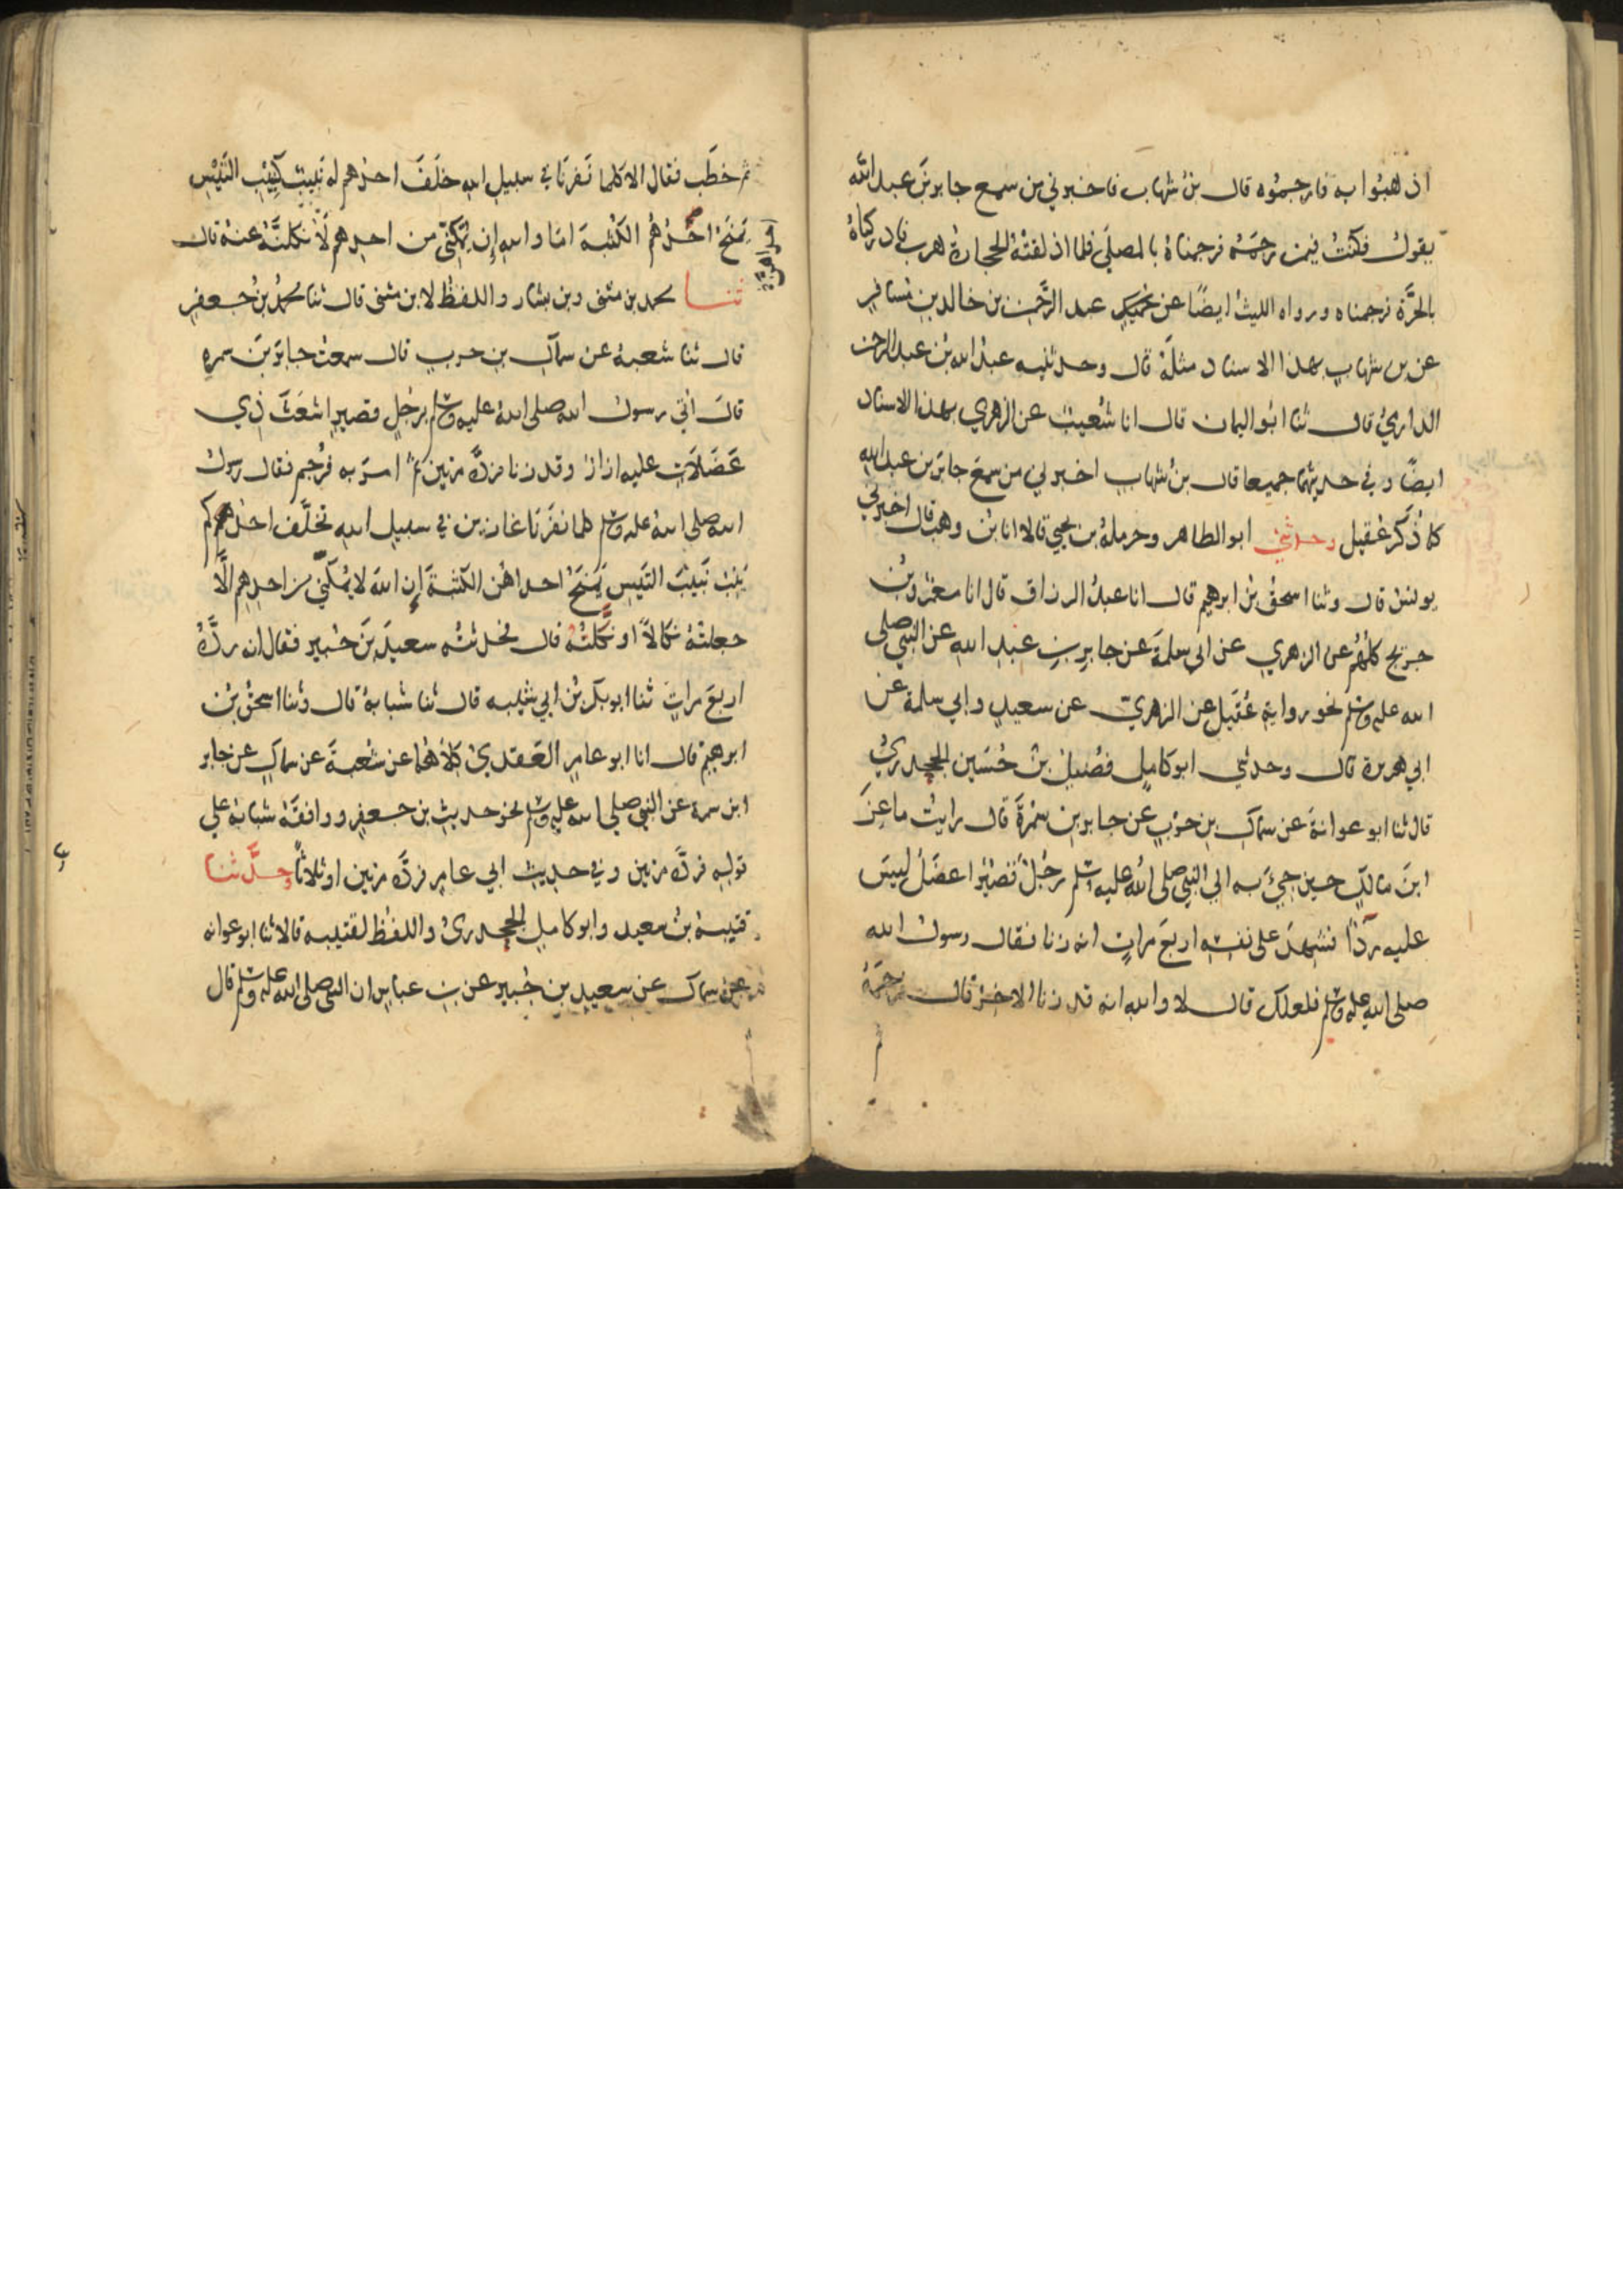 اذهبوا به فارجموه قال بن شهاب فاخبرني من سمع جابر بن عبد الله
يقول فكنت فيمن رجمه فرجمناه بالمصلى فلما اذلقته الحجارة هرب فادركناه
بالحرة فرجمناه ورواه الليث ايضا عن عبد الرحمن بن خالد بن مسافر
عن بن شهاب بهذا الاسناد مثله قال وحدثنيه عبد الله بن عبد الرحمن
الدارمي قال ثنا ابو اليمان قال انا شعيب عن الزهري بهذا الاسناد
ايضا وفي حديثهما جميعا قال بن شهاب اخبرني من سمع جابر بن عبد الله
كما ذكر عقيل وحدثني ابو الطاهر وحرملة بن يحيى قالا انا بن وهب قال اخبرني
يونس قال وثنا اسحق بن ابرهيم قال انا عبد الرزاق قال انا معمر وبن
جريج كلهم عن الزهري عن ابي سلمة عن جابر بن عبد الله عن النبي صلى
الله عليه وسلم نحو رواية عقيل عن الزهري عن سعيد وابي سلمة عن
ابي هريرة قال وحدثني ابو كامل فضيل بن حسين الجحدري
قال ثنا ابو عوانة عن سماك بن حرب عن جابر بن سمرة قال رايت ماعز
ابن مالك حين جيء به الى النبي صلى الله عليه وسلم رجل قصير اعضل ليس
عليه ردا فشهد على نفسه اربع مرات انه زنا فقال رسول الله
صلى الله عليه وسلم فلعلك قال لا والله انه قد زنا الاخر قال رجمه
ثم
ثم خطب فقال الا كلما نفرنا في سبيل الله خلف احدهم له نبيب كنبيب التيس
يمنح احدهم الكثبة اما والله إن يمكني من احدهم لأنكلنه عنه قال
ثنا محمد بن مثنى وبن بشار واللفظ لابن مثنى قال ثنا محمد بن جعفر
قال ثنا شعبة عن سماك بن حرب قال سمعت جابر بن سمرة
قال اتي رسول الله صلى الله عليه وسلم برجل قصير اشعث ذي
عضلات عليه ازار وقد زنا فرده مرتين ثم امر به فرجم فقال رسول
الله صلى الله عليه وسلم كلما نفرنا غازين في سبيل الله تخلف احدكم
ينب نبيب التيس يمنح احداهن الكثبة إن الله لا يمكني من احدهم الا
جعلته نكالا او نكلته قال فحدثته سعيد بن جبير فقال انه رده
اربع مرات ثنا ابو بكر بن ابي شيبه قال ثنا شبابة قال وثنا اسحق بن
ابرهيم قال انا ابو عامر العقدي كلاهما عن شعبة عن سماك عن جابر
ابن سمرة عن النبي صلى الله عليه وسلم نحو حديث بن جعفر ووافقه شبابة على
قوله فرده مرتين وفي حديث ابي عامر فرده مرتين او ثلاثا وحدثنا
قتيبة بن سعيد وابو كامل الجحدري واللفظ لقتيبه قالا ثنا ابو عوانه
عن سماك عن سعيد بن جبير عن بن عباس ان النبي صلى الله عليه وسلم قال